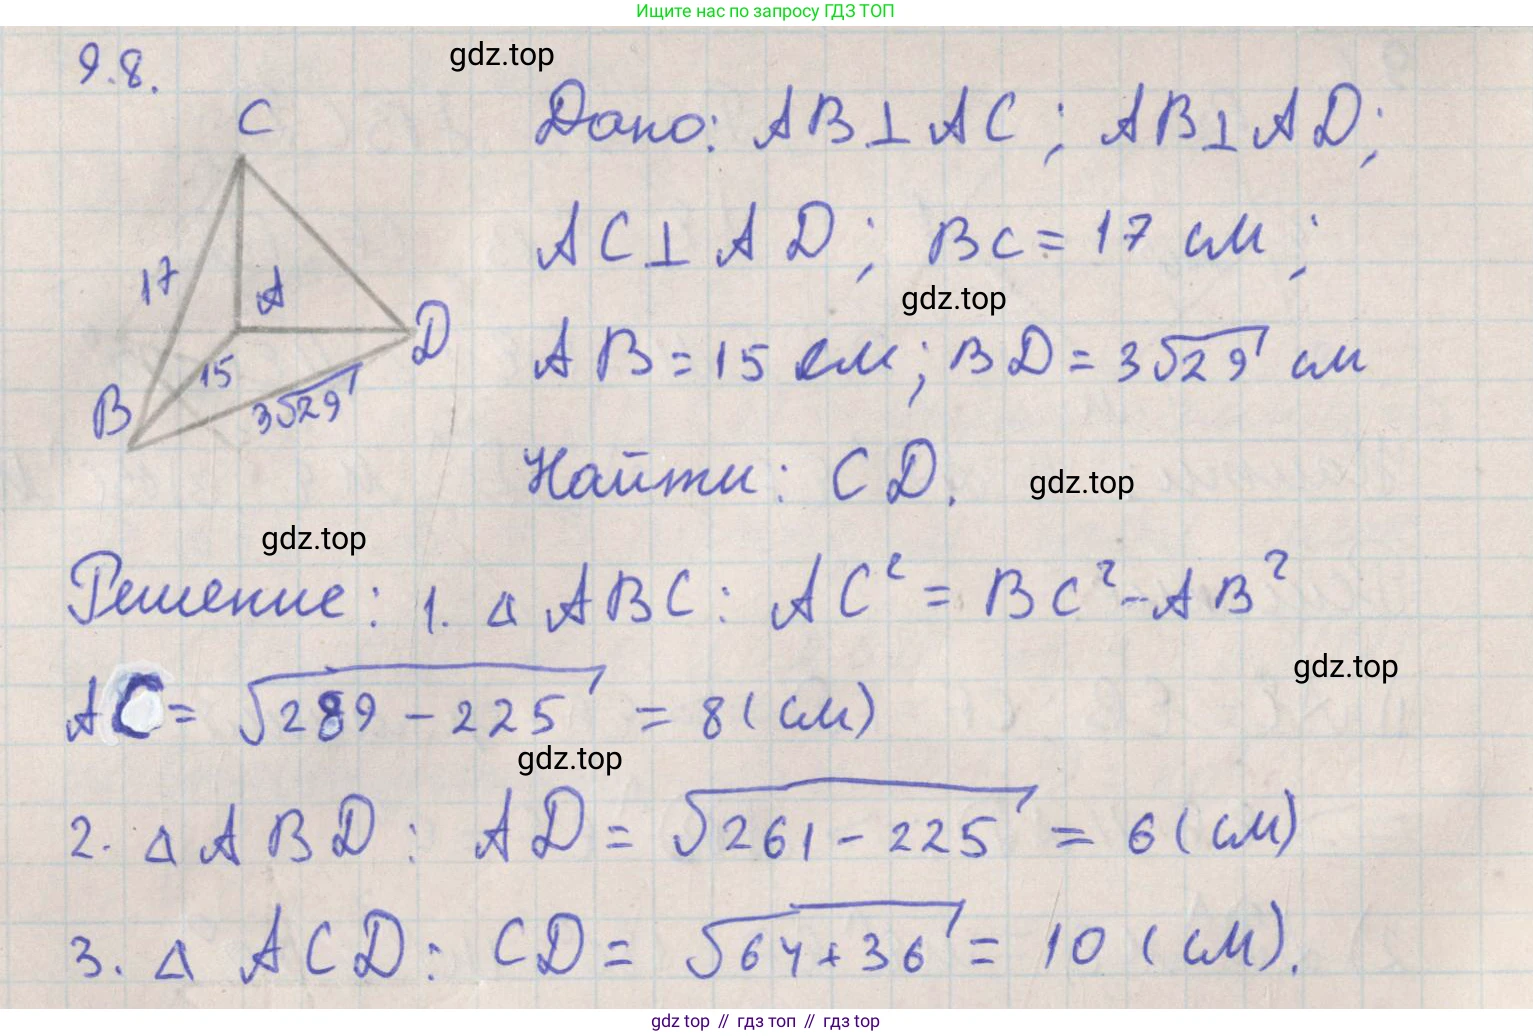 Ищите нас по запросу ГДЗ ТОП
9.8.
gdz.top
C
Дано: AB⊥AC; AB⊥AD;
AC⊥AD; BC=17 см;
17
A
gdz.top
D
AB=15 см; BD=3√29 см
15
B
3√29
Найти: CD.
gdz.top
gdz.top
Решение: 1. △ABC: AC²=BC²-AB²
gdz.top
AC=√289-225=8(см)
gdz.top
2. △ABD: AD=√261-225=6(см)
3. △ACD: CD=√64+36=10(см).
gdz top // гдз топ // гдз top